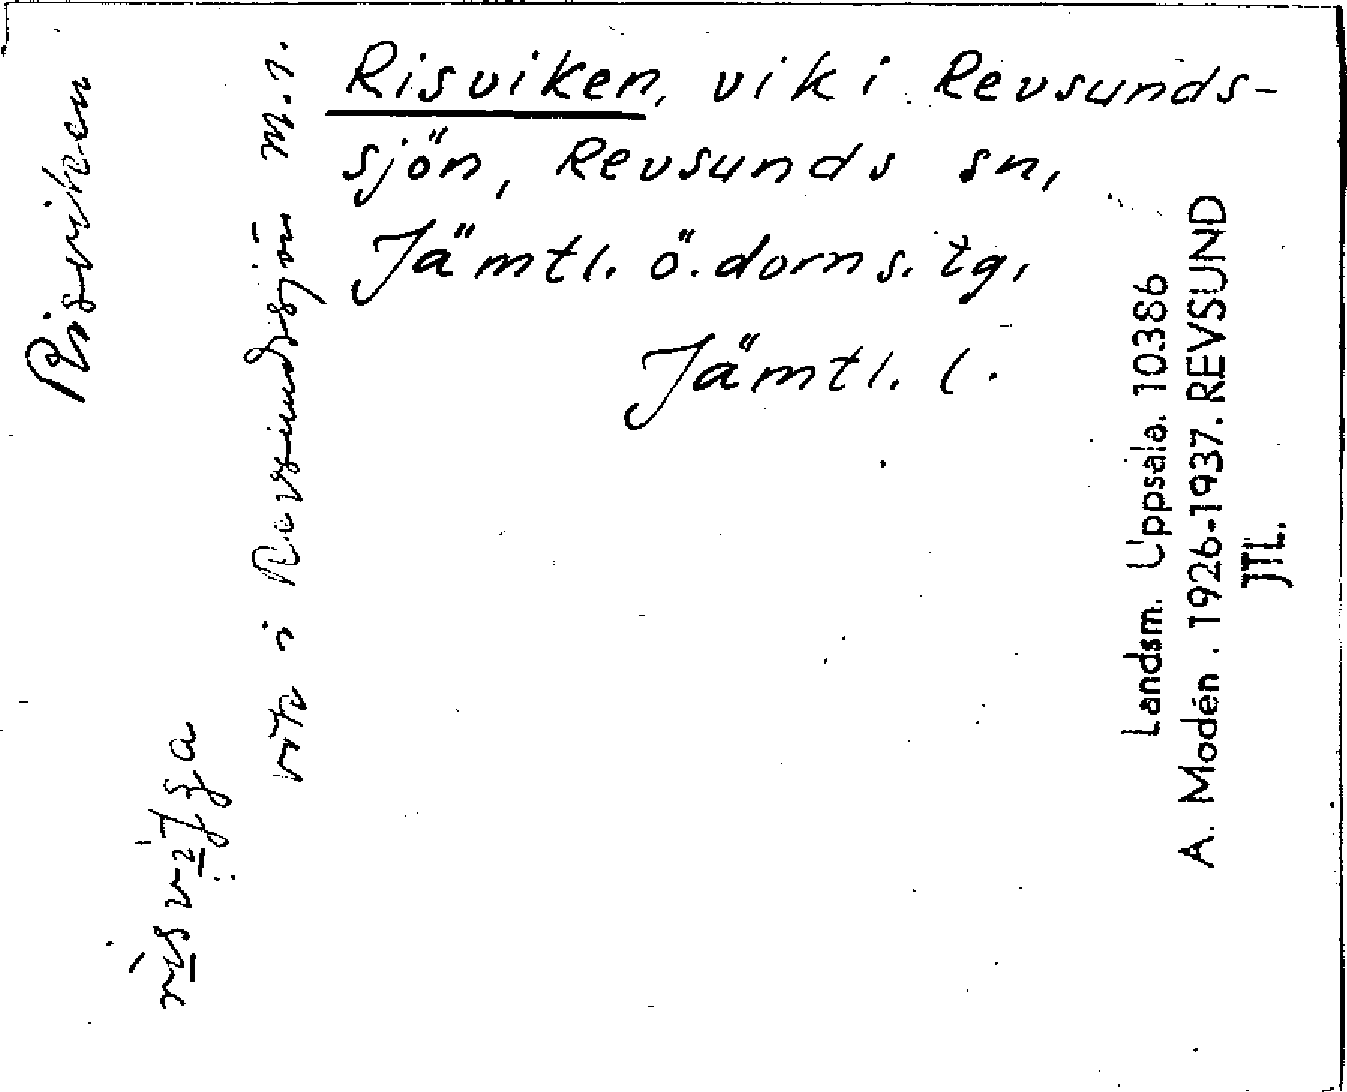 Risviken, vik i Revsunds-
sjön, Revsunds sn,
Jämtl. ö. doms. tg,
Jämtl. l.
Risviken
vik i Revsundssjön m.1.
Landsm. Uppsala. 10386
A. Modén. 1926-1937. REVSUND
JTL.